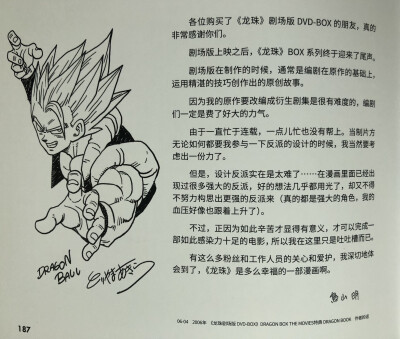 各位购买了《龙珠》剧场版 DVD-BOX 的朋友，真的
非常感谢你们。
剧场版上映之后，《龙珠》BOX 系列终于迎来了尾声。
剧场版在制作的时候，通常是编剧在原作的基础上，
运用精湛的技巧创作出的原创故事。
因为我的原作要改编成衍生剧集是很有难度的，编剧
们一定是费了好大的力气。
由于一直忙于连载，一点儿忙也没有帮上。当制片方
无论如何都要我参与一下反派的设计的时候，我当然要考
虑出一份力了。
但是，设计反派实在是太难了……在漫画里面已经出
现过很多强大的反派，好的想法几乎都用光了，却又不得
不努力构思出更强的反派来（真的都是强大的角色，我的
血压好像也跟着上升了）。
不过，正因为如此辛苦才显得有意义，才可以完成一
部如此感染力十足的电影，所以我在这里只是吐吐槽而已。
有这么多粉丝和工作人员的关心和爱护，我深切地体
会到了，《龙珠》是多么幸福的一部漫画啊。
DRAGON
BALL
鸟山明
187
06-04 2006年 《龙珠剧场版 DVD-BOX》DRAGON BOX THE MOVIES特典 DRAGON BOOK